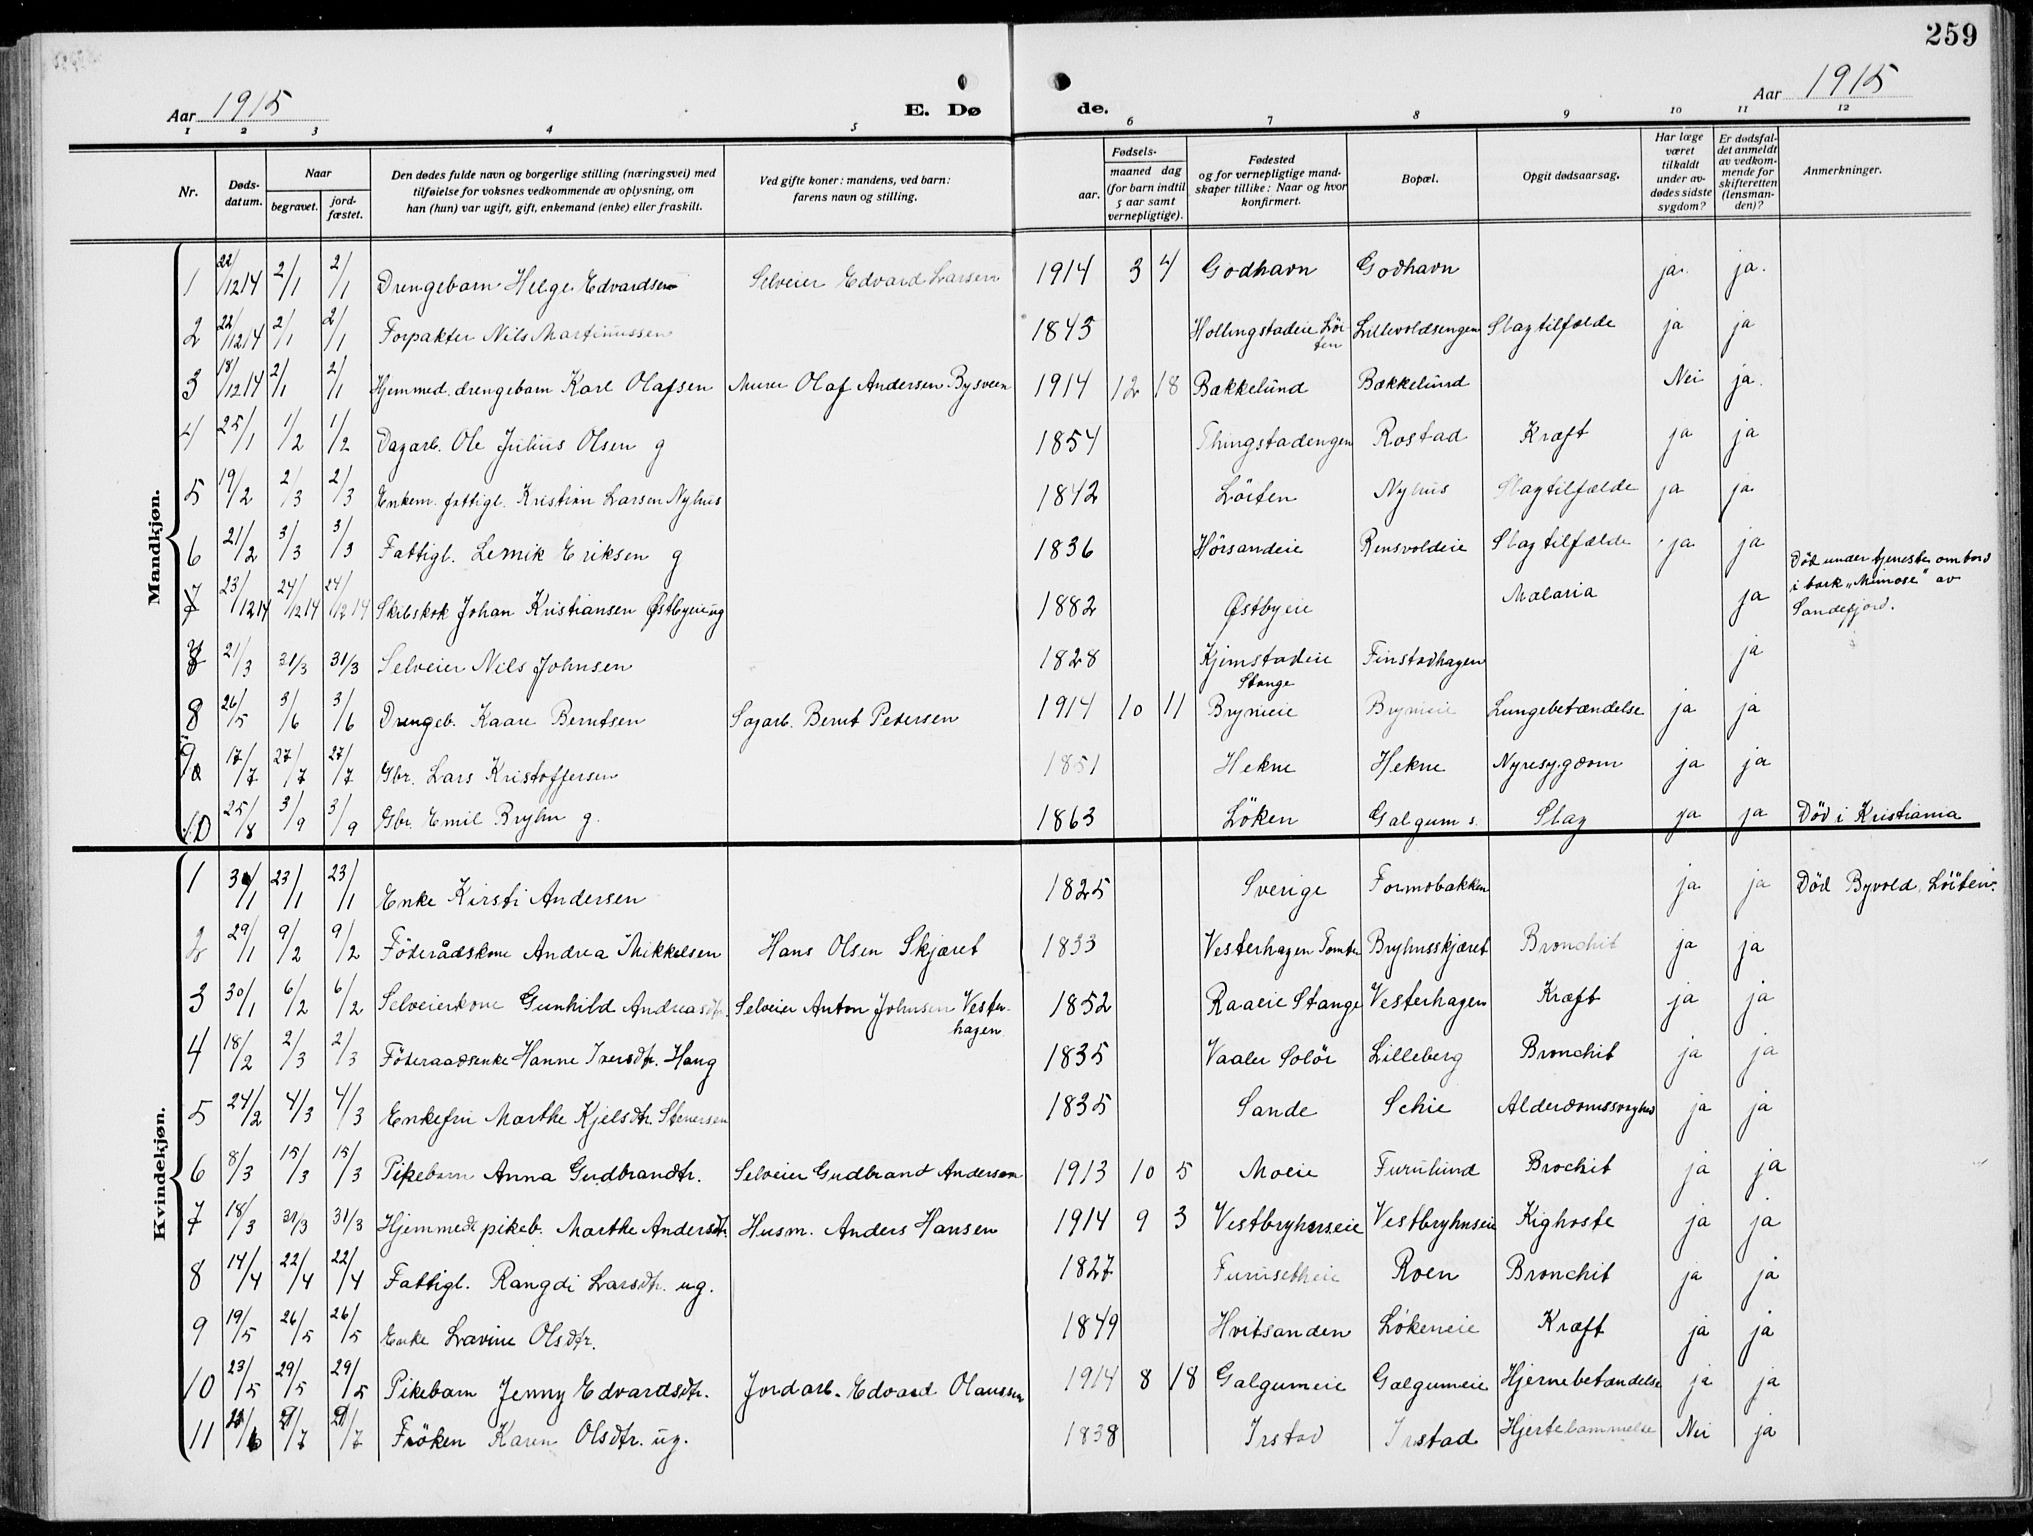 259
Aar 1915
E. Dø de.
Aar 1915
1 2 3 4 5 6 7 8 9 10 11 12
Nr.
Døds-
datum.
Naar
begravet.
jord-
fæstet.
Den dødes fulde navn og borgerlige stilling (næringsvei) med
tilføielse for voksnes vedkommende av oplysning, om
han (hun) var ugift, gift, enkemand (enke) eller fraskilt.
Ved gifte koner: mandens, ved barn:
farens navn og stilling.
Fødsels-
aar.
maaned dag
(for barn indtil
5 aar samt
vernepligtige).
Fødested
og for vernepligtige mand-
skaper tillike: Naar og hvor
konfirmert.
Bopæl.
Opgit dødsaarsag.
Har læge
været
tilkaldt
under av-
dødes sidste
sygdom?
Er dødsfal-
det anmeldt
av vedkom-
mende for
skifteretten
(lensman-
den)?
Anmerkninger.
Mandkjøn.
1 22/12 14 2/1 2/1 Drengebarn Helge Edvardsen Selveier Edvard Larsen 1914 3 4 Godhavn Godhavn ja. ja.
2 22/12 14 2/1 2/1 Forpakter Nils Martinussen 1843 Hollingstadeie Löi-
ten Lillevoldsengen Slagtilfælde ja ja
3 18/12 14 2/1 2/1 Hjemmed. drengebarn Karl Olafsen Murer Olaf Andersen Bysveen 1914 12 18 Bækkelund Bækkelund Nei ja.
4 25/1 1/2 1/2 Dagarb. Ole Julius Olsen g 1854 Thingstadengen Rostad Kræft ja ja
5 19/2 2/3 2/3 Enkem. fattigl. Kristian Larsen Nyhus 1842 Löiten Nyhus Slagtilfælde ja ja
6 21/2 3/3 3/3 Fattigl. Lemik Eriksen g 1836 Hörsandeie Rensvoldeie Slagtilfælde ja ja
7 23/12 14 24/12 14 24/12 14 Skibskok Johan Kristiansen Østbyeie ug 1882 Østbyeie Malaria ja Död under tjeneste ombord
i bark "Mimose" av
Sandefjord.
21/3 31/3 31/3 Selveier Nils Johnsen 1828 Kjemstadeie
Stange Finstadhagen ja
8 26/5 3/6 3/6 Drengeb. Kaare Berntsen Sagarb. Bernt Petersen 1914 10 11 Brynieie Brynieie Lungebetændelse ja ja
9 17/7 27/7 27/7 Gbr. Lars Kristoffersen 1851 Hekne Hekne Nyresygdom ja ja
10 25/8 3/9 3/9 Gbr. Emil Bryhn g. 1863 Löken Galgum s. Slag ja ja Död i Kristiania
Kvindekjøn.
1 23/1 23/1 Enke Kirsti Andersen 1825 Sverige Formobakken ja ja Död Byvold, Löiten.
2 29/1 9/2 9/2 Föderådskone Andrea Mikkelsen Hans Olsen Skjæret 1833 Vesterhagen Tomter Bryhnsskjæret Bronchit ja ja
3 30/1 6/2 6/2 Selveierkone Gunhild Andreasdtr. Selveier Anton Johnsen Vester-
hagen 1852 Raaeie Stange Vesterhagen Kræft ja ja
4 18/2 2/3 2/3 Föderaadsenke Hanne Iversdtr. Haug 1835 Vaaler Solör Lilleberg Bronchit ja ja
5 24/2 4/3 4/3 Enkefru Marthe Kjelsdtr. Stenersen 1835 Sande Schie Alderdomssvaghed ja ja
6 8/3 15/3 15/3 Pikebarn Anna Gudbrandtr. Selveier Gudbrand Andersen 1913 10 5 Moeie Furulund Brochit ja ja
7 18/3 31/3 31/3 Hjemmed pikeb. Marthe Andersdtr. Husm. Anders Hansen 1914 9 3 Vestbryhnseie Vestbryhnseie Kighoste ja ja
8 14/4 22/4 22/4 Fattigl. Rangdi Larsdtr. ug. 1827 Furusetheie Roen Bronchit ja ja
9 19/5 26/5 26/5 Enke Lavine Olsdtr. 1849 Hvitsanden Lökeneie Kræft ja ja
10 23/5 29/5 29/5 Pikebarn Jenny Edvardsdtr. Jordarb. Edvard Olaussen 1914 8 18 Galgumeie Galgumeie Hjernebetændelse ja ja
11 Fröken Karen Olsdtr. ug. 1838 Irstad Irstad Hjertelammelse Nei ja